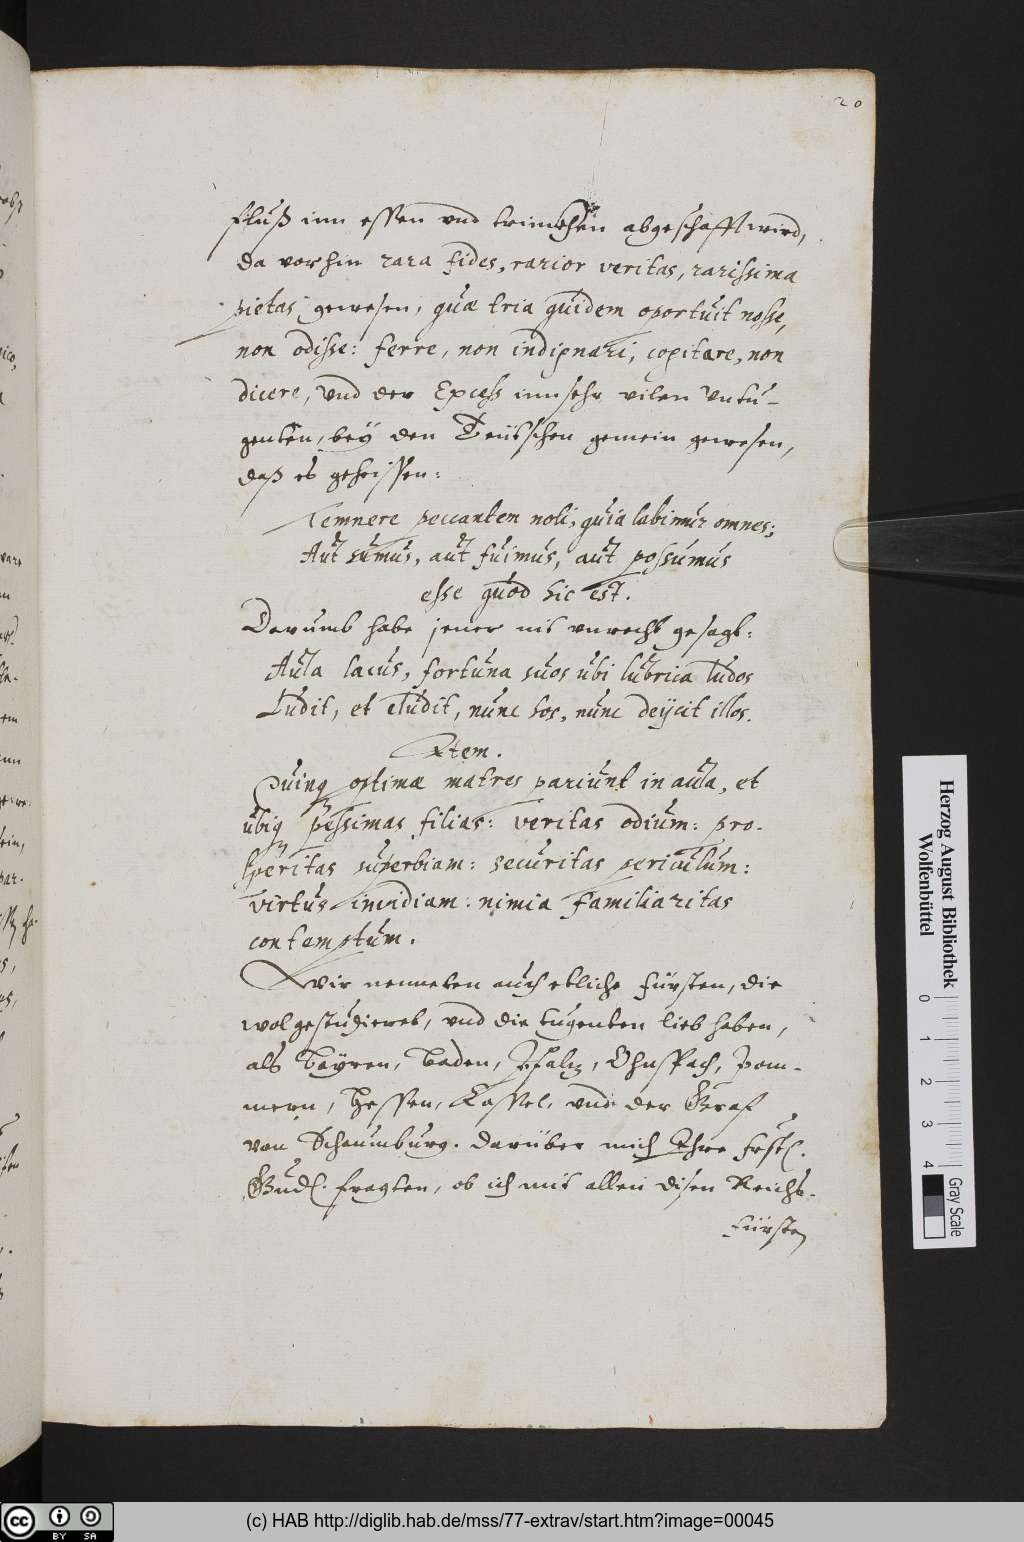 20
fluß inn essen vnd trinckhen abgeschafft wird,
da vorhin rara fides, rarior veritas, rarissima
pietas, gewesen, quæ tria quidem oportuit nosse,
non odisse: ferre, non indignari, cogitare, non
dicere, vnd der Excess inn sehr vilen vntu-
genten, bey den Teütschen gemein gewesen,
daß es geheissen:
Temnere peccantem noli, quia labimur omnes;
Aut sumus, aut fuimus, aut possumus
esse quod hic est.
Darumb habe jener nit vnrecht gesagt:
Aula lacus, fortuna suos ubi lubrica ludos
Ludit, et eludit, nunc hos, nunc deijcit illos.
Item.
Quinq optimæ matres pariunt in aula, et
ubiq pessimas filias: veritas odium: pro-
speritas superbiam: securitas periculum:
virtus invidiam: nimia familiaritas
contemptum.
Wir nenneten auch etliche Fürsten, die
wol gestudieret, vnd die tugenten lieb haben,
als Bayren, Baden, Pfaltz, Ohnspach, Pom-
mern, Hessen, Cassel, vnd der Graf
von Schaumburg. Darüber mich Ihre Frstl.
Gnd. fragten, ob ich mit allen disen Reichs-
fürsten
Herzog August Bibliothek
Wolfenbüttel
0 1 2 3 4
Gray Scale
cc BY SA
(c) HAB http://diglib.hab.de/mss/77-extrav/start.htm?image=00045